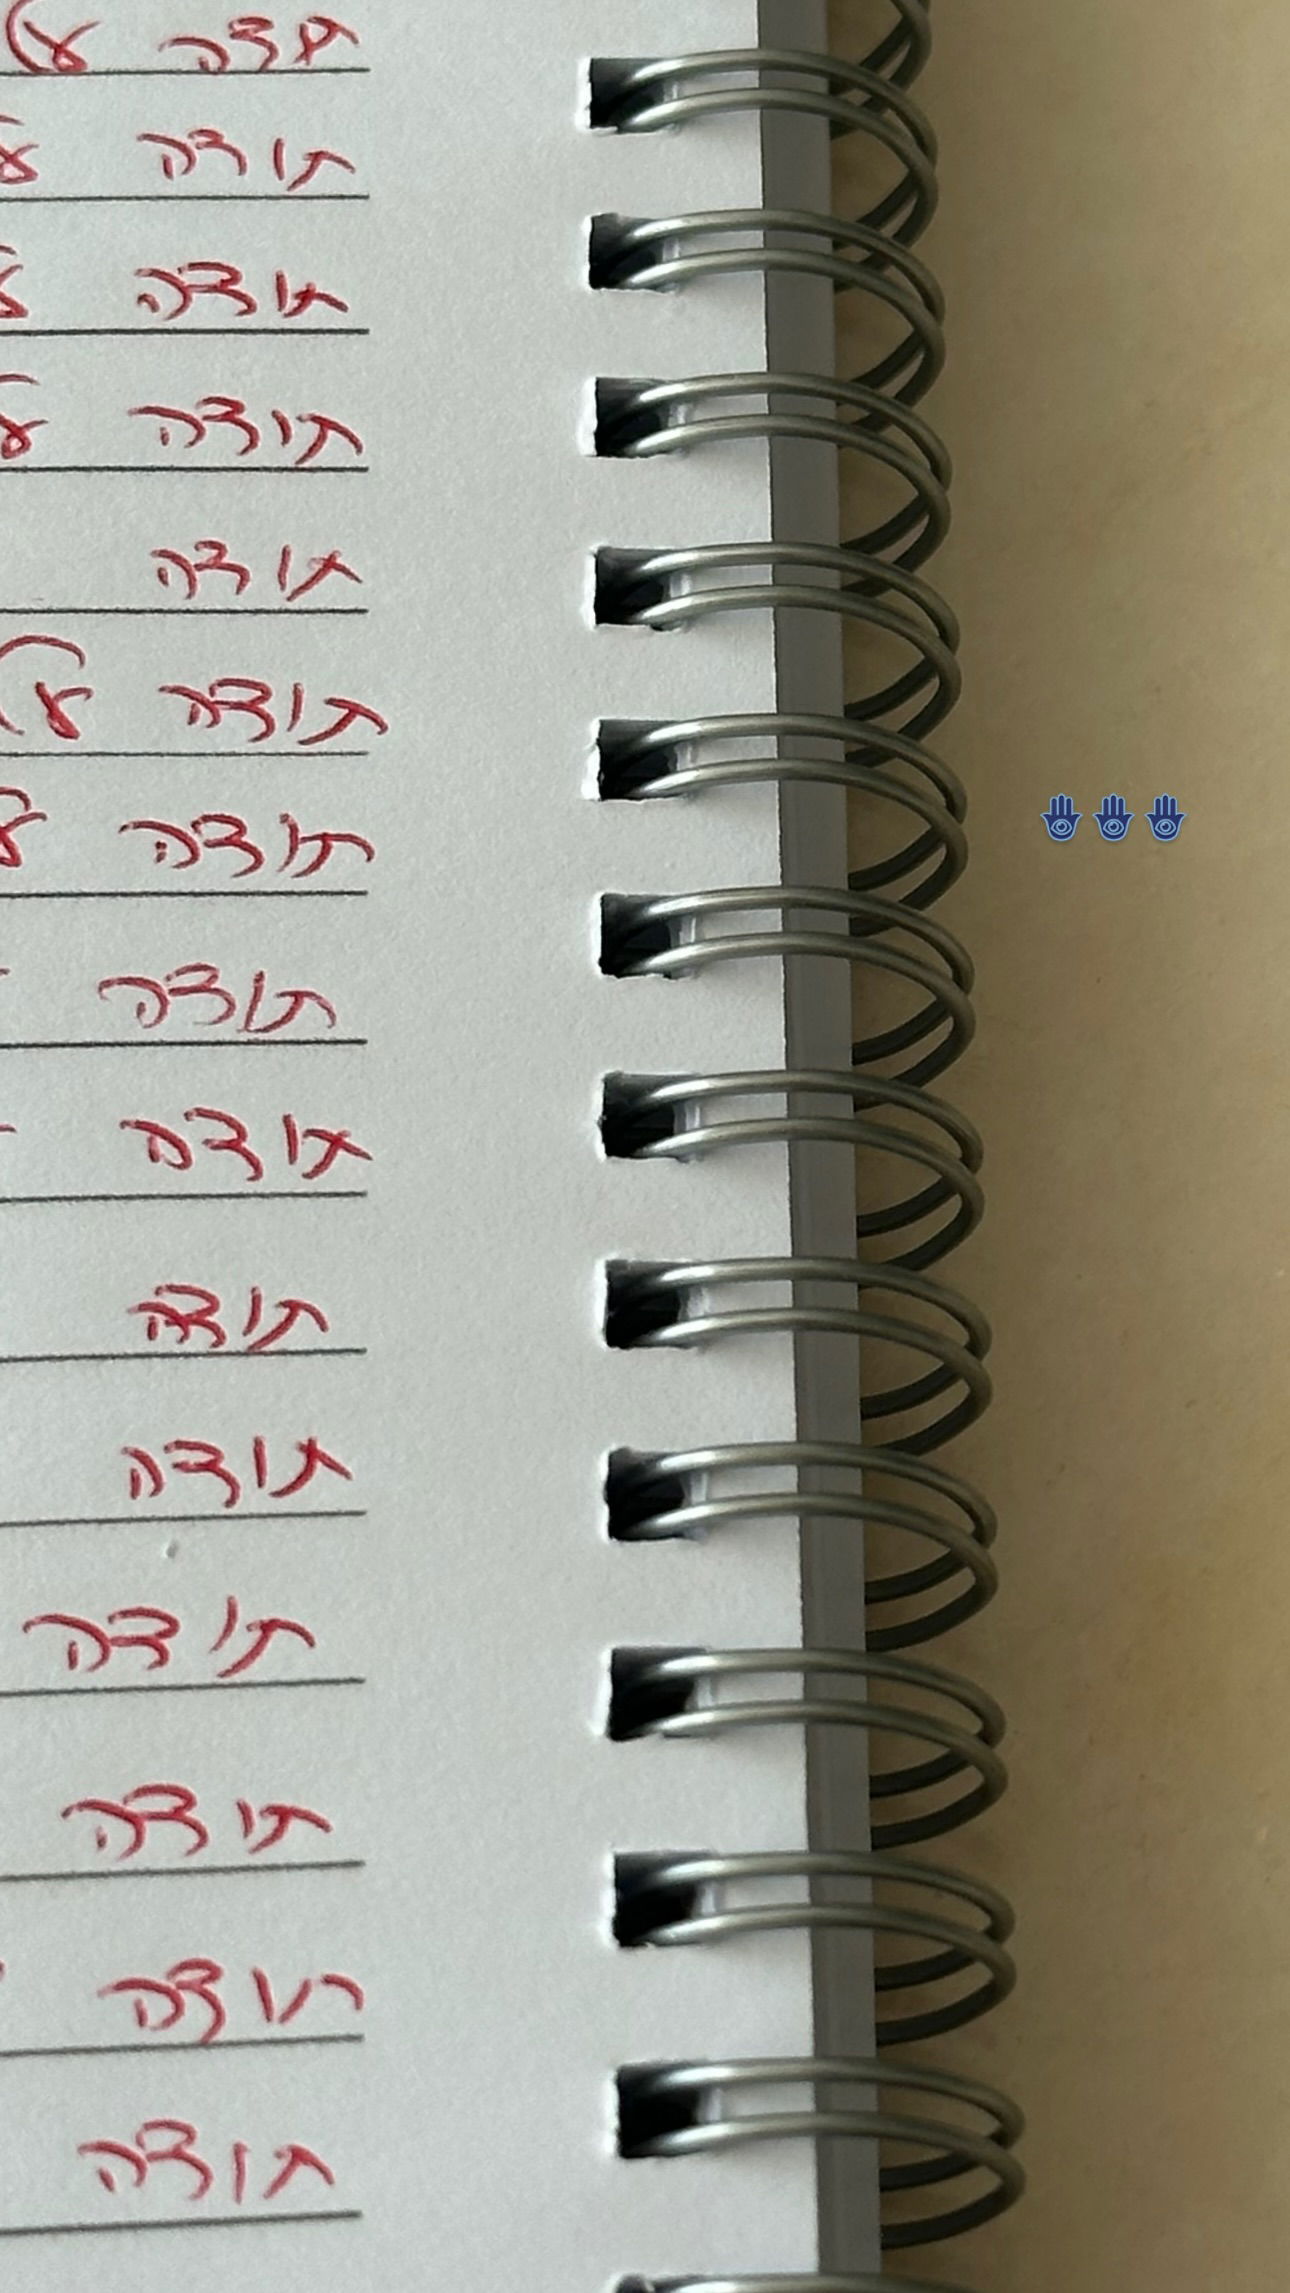 תודה על
תודה
תודה
תודה
תודה
תודה על
תודה
תודה
תודה
תודה
תודה
תודה
תודה
תודה
תודה